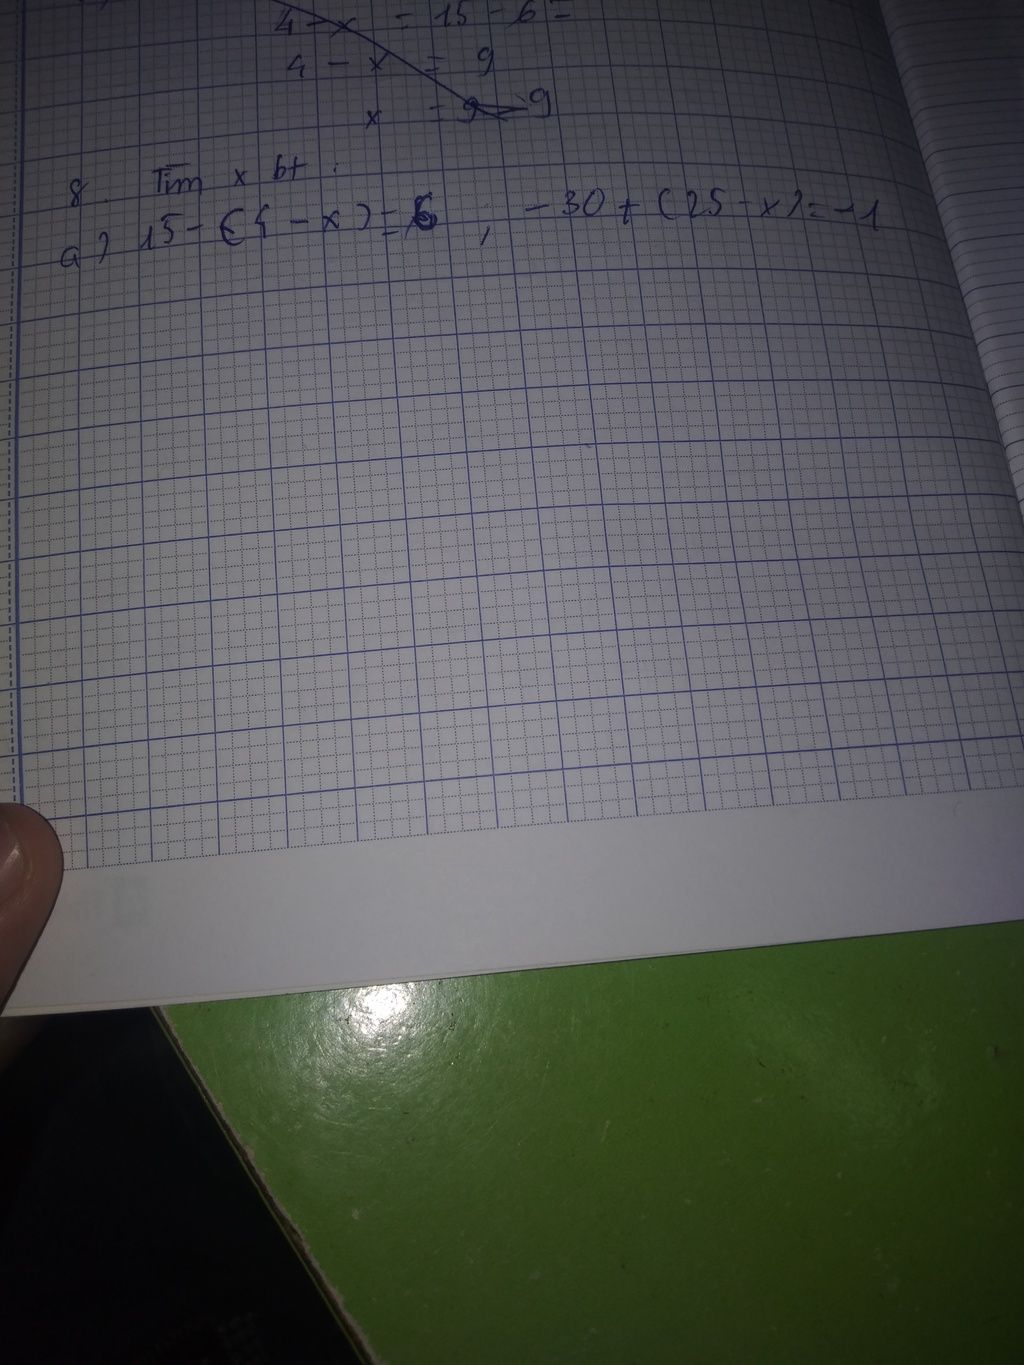 4 - x = 15 - 6 =
4 - x = 9
x = 9 9
8. Tìm x bt :
a) 15 - (4 - x) = 6 ; - 30 + (25 - x) = -1